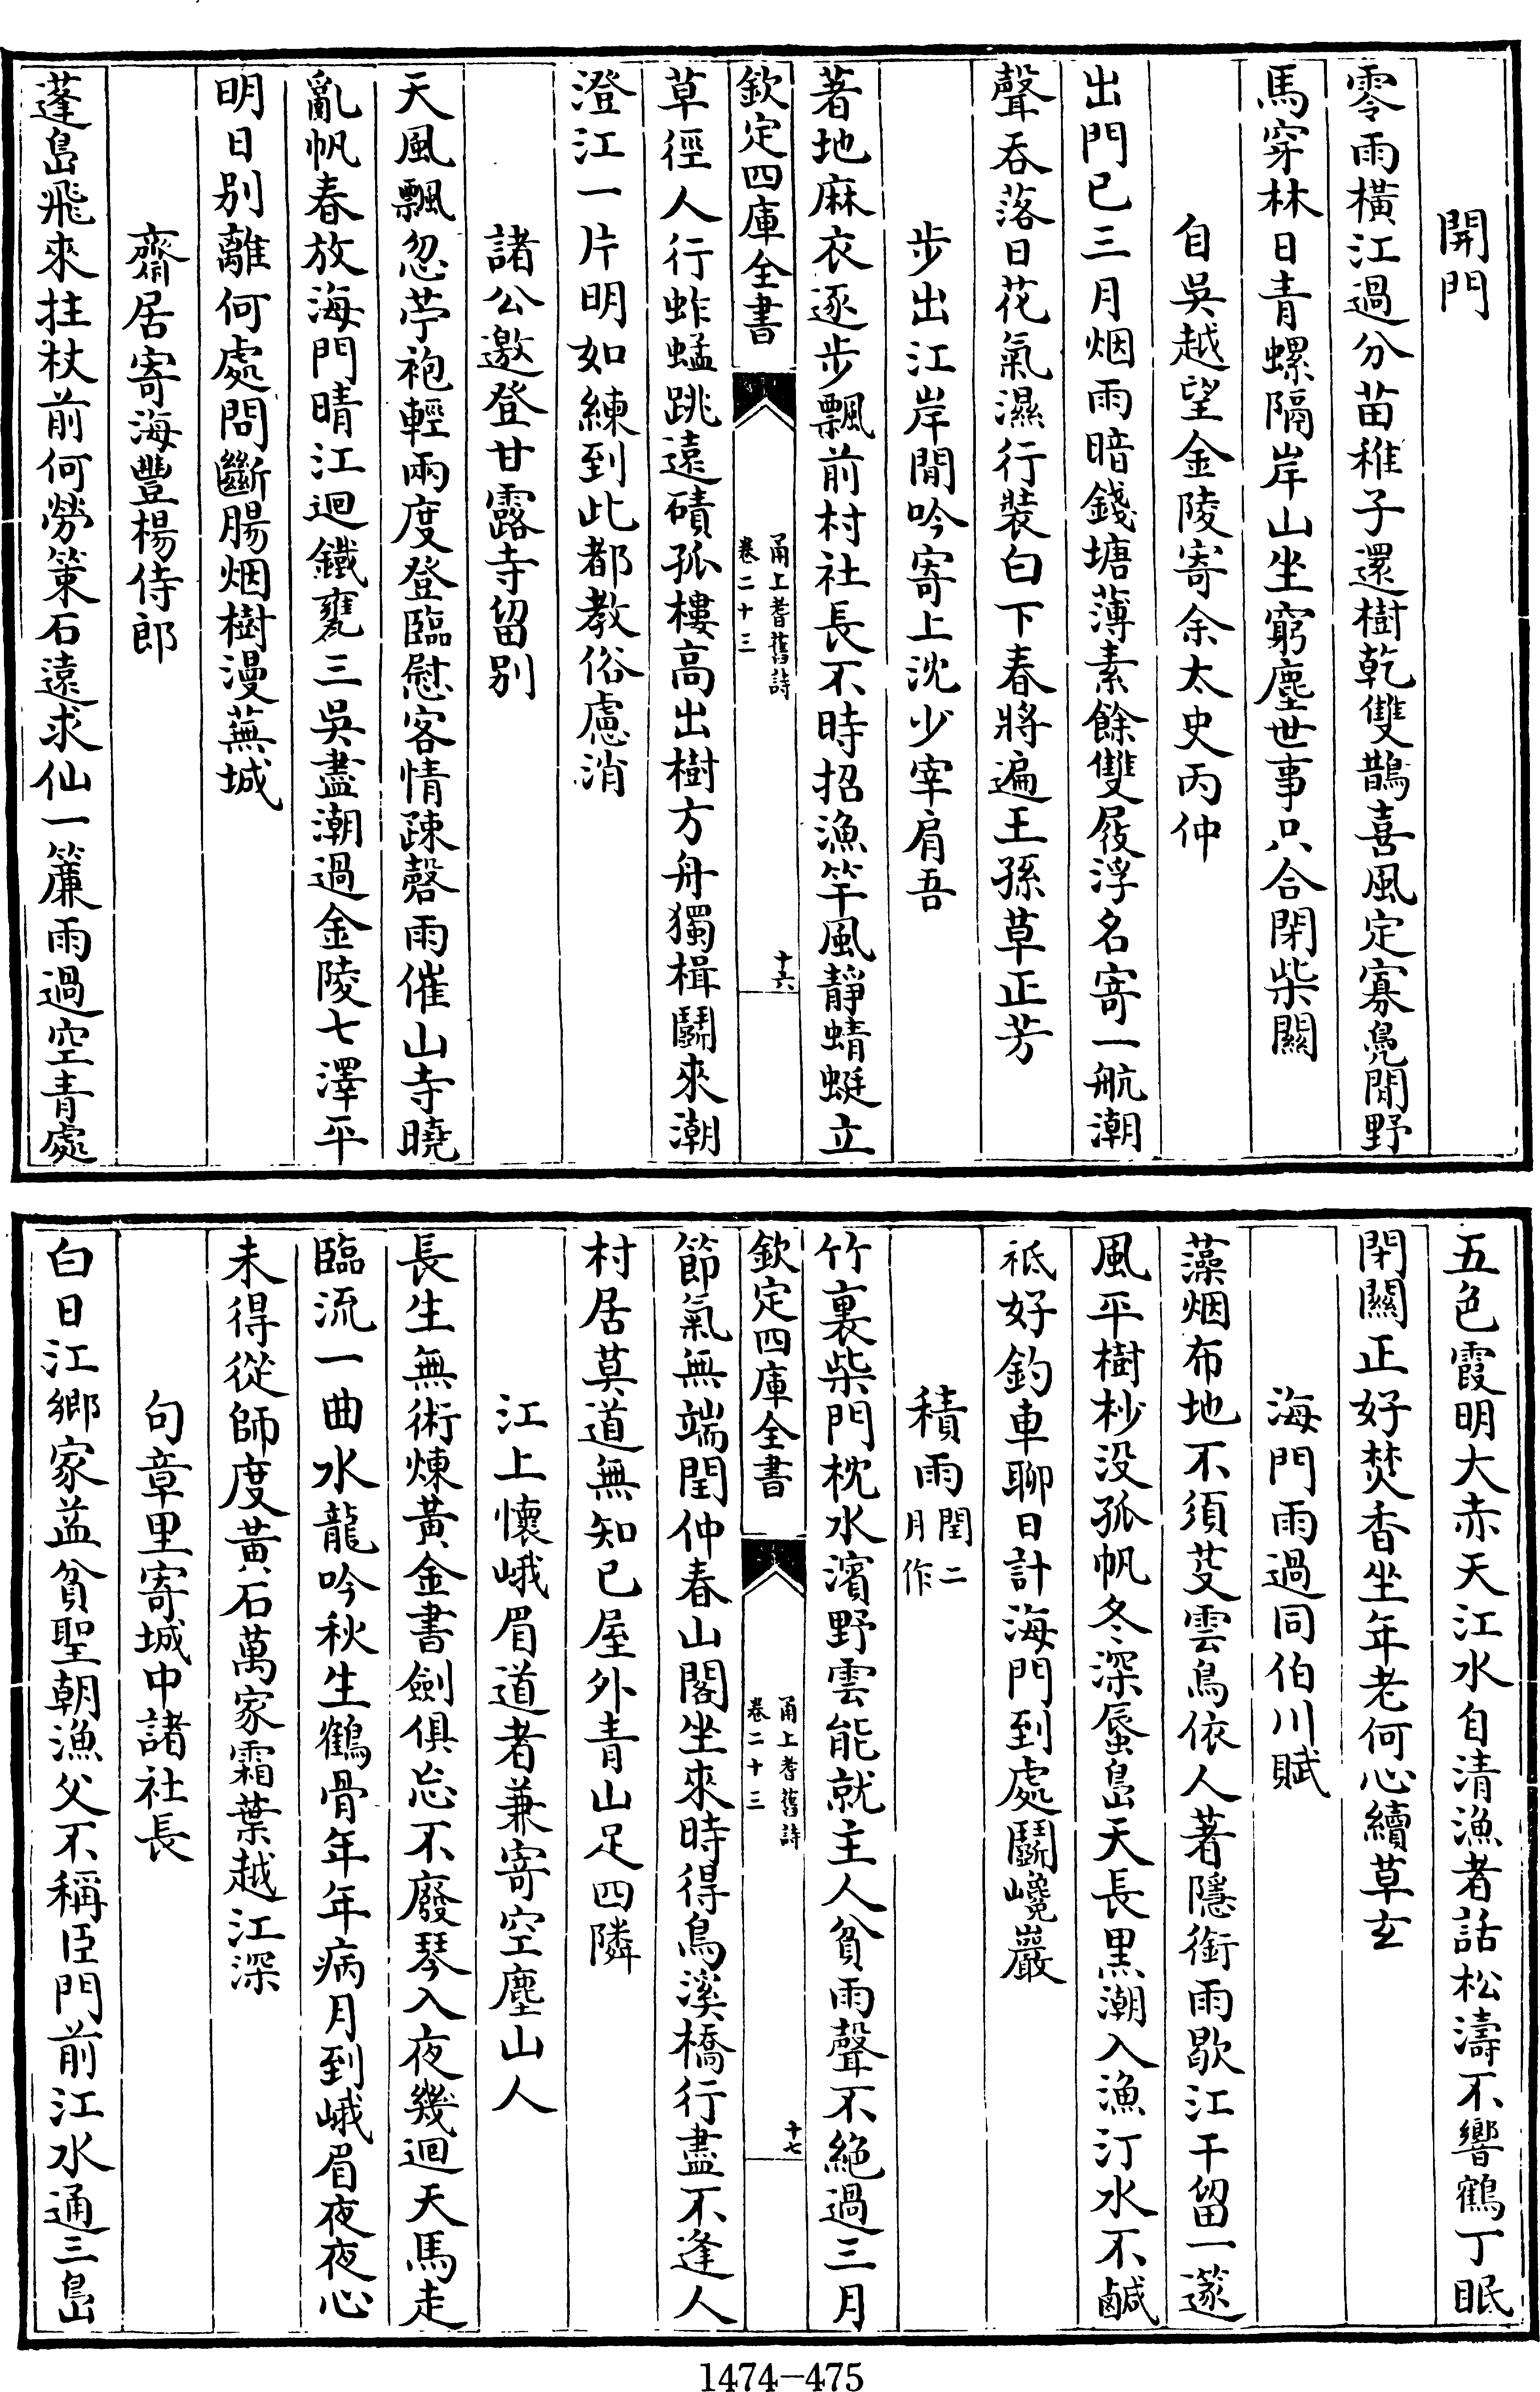 開門
零雨橫江過分苗稚子還樹乾雙鵲喜風定寡鳧閒野
馬穿林日青螺隔岸山坐窮塵世事只合閉柴關
自吳越望金陵寄余太史丙仲
出門已三月烟雨暗錢塘薄素餘雙屐浮名寄一航潮
聲吞落日花氣濕行裝白下春將遍王孫草正芳
步出江岸閒吟寄上沈少宰肩吾
著地麻衣逐步飄前村社長不時招漁竿風靜蜻蜓立
欽定四庫全書
甬上耆舊詩
卷二十三
十六
草徑人行蚱蜢跳遠磧孤樓高出樹方舟獨楫鬭來潮
澄江一片明如練到此都教俗慮消
諸公邀登甘露寺留別
天風飄忽苧袍輕兩度登臨慰客情疎磬雨催山寺曉
亂帆春放海門晴江迴鐵甕三吳盡潮過金陵七澤平
明日別離何處問斷腸烟樹漫蕪城
齋居寄海豐楊侍郎
蓬島飛來拄杖前何勞策石遠求仙一簾雨過空青處
五色霞明大赤天江水自清漁者話松濤不響鶴丁眠
閉關正好焚香坐年老何心續草玄
海門雨過同伯川賦
藻烟布地不須芟雲鳥依人著隱銜雨歇江干留一篴
風平樹杪没孤帆冬深蜃島天長黑潮入漁汀水不鹹
祗好釣車聊日計海門到處鬭巉巖
積雨閏二月作
竹裏柴門枕水濱野雲能就主人貧雨聲不絕過三月
欽定四庫全書
甬上耆舊詩
卷二十三
十七
節氣無端閏仲春山閣坐來時得鳥溪橋行盡不逢人
村居莫道無知已屋外青山足四隣
江上懷峨眉道者兼寄空塵山人
長生無術煉黃金書劍俱忘不廢琴入夜幾迴天馬走
臨流一曲水龍吟秋生鶴骨年年病月到峨眉夜夜心
未得從師度黃石萬家霜葉越江深
句章里寄城中諸社長
白日江鄉家益貧聖朝漁父不稱臣門前江水通三島
1474-475